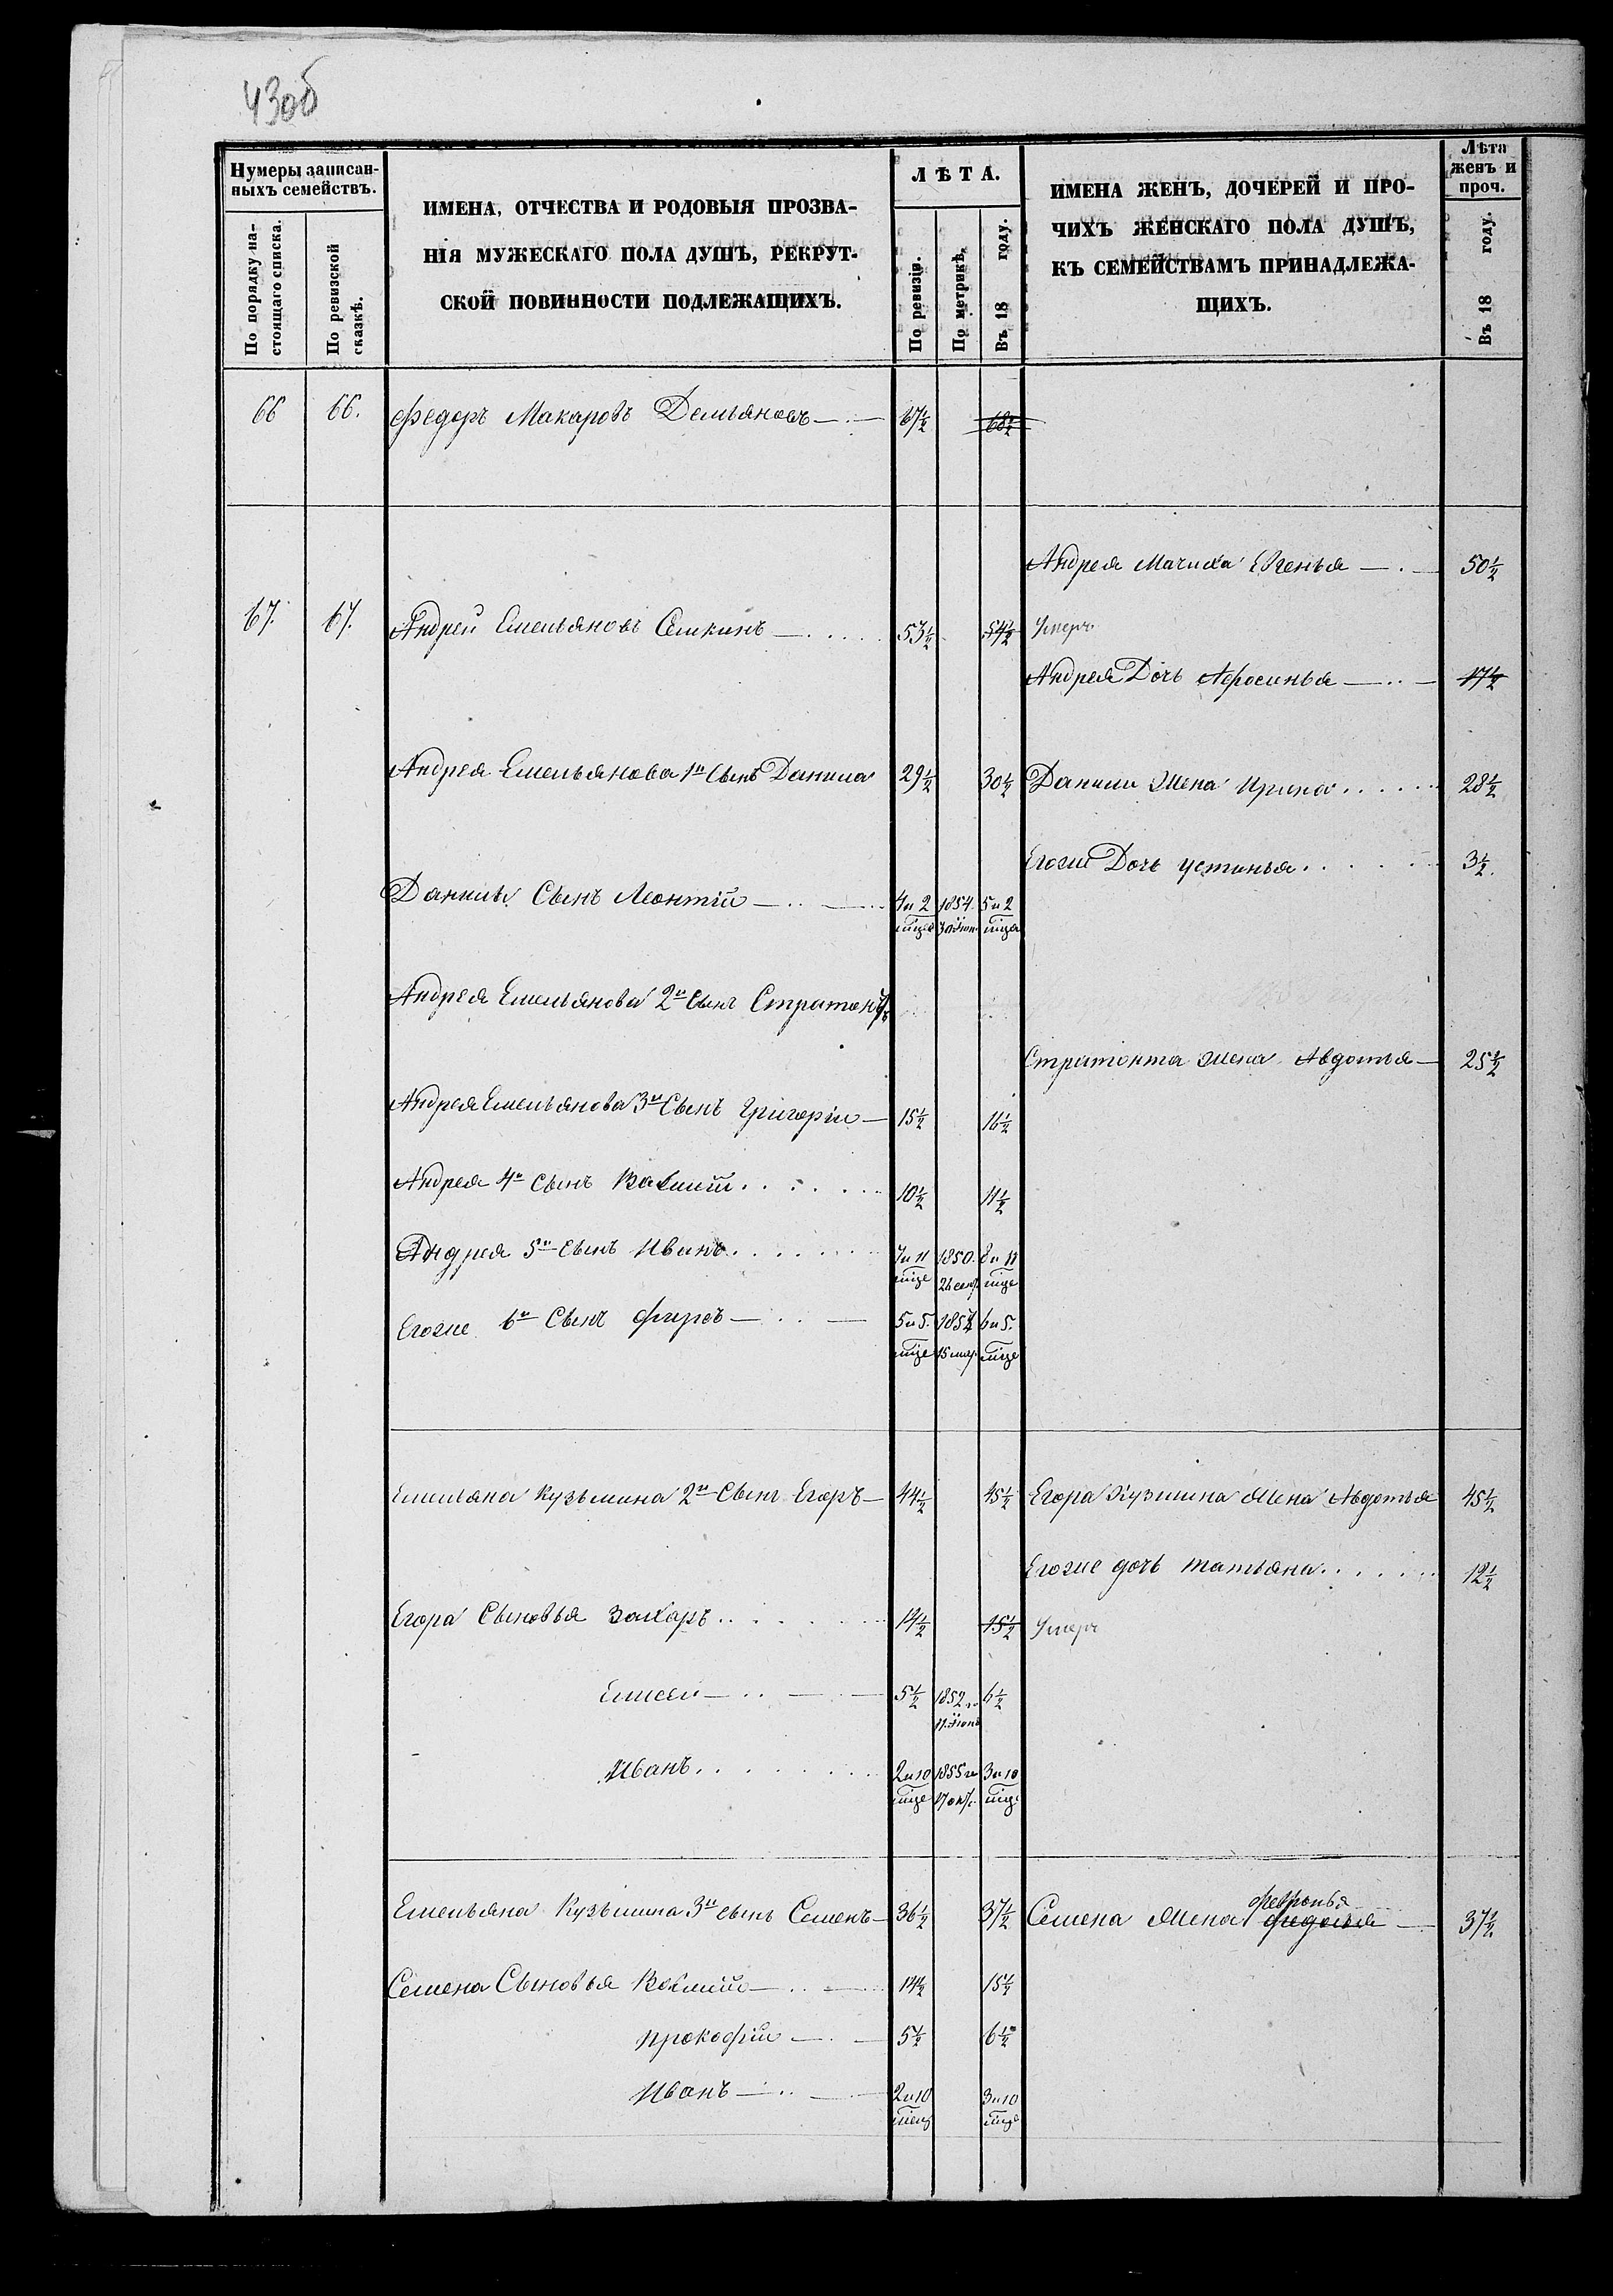 43об
Нумеры записан-
ныхъ семействъ.
По порядку на-
стоящаго списка.
По ревизской
сказкѣ.
ИМЕНА, ОТЧЕСТВА И РОДОВЫЯ ПРОЗВА-
НІЯ МУЖЕСКАГО ПОЛА ДУШЪ, РЕКРУТ-
СКОЙ ПОВИННОСТИ ПОДЛЕЖАЩИХЪ.
ЛѢТА.
По ревизіи.
По метрикѣ.
Въ 18 году.
ИМЕНА ЖЕНЪ, ДОЧЕРЕЙ И ПРО-
ЧИХЪ ЖЕНСКАГО ПОЛА ДУШЪ,
КЪ СЕМЕЙСТВАМЪ ПРИНАДЛЕЖА-
ЩИХЪ.
Лѣта
женъ и
проч.
Въ 18 году.
66 66. Федоръ Макаровъ Демьяновъ 67½ 68½
Андрея Мачиха Евгенья 50½
67. 67. Андрей Емельяновъ Семкинъ 53½ 54½ Умеръ
Андрея Дочь Афросинья 17½
Андрея Емельянова 1й Сынъ Данила 29½ 30½ Данилы Жена Ирина 28½
Егоже Дочь Устинья 3½
Данилы Сынъ Леонтій 4и2 1854. 5и2
мѣца 30 Іюн. мѣца
Андрея Емельянова 2й Сынъ Стратонъ
Стратонта Жена Авдотья 25½
Андрея Емельянова 3й Сынъ Григорій 15½ 16½
Андрея 4й Сынъ Василій 10½ 11½
Андрея 5й Сынъ Иванъ 7и11 1850. 8и11
мѣце 26 сен. мѣце
Егоже 6й Сынъ Фирсъ 5и5. 1852 6и5.
мѣце 15 мѣце
Емельяна Кузьмина 2й Сынъ Егоръ 44½ 45½ Егора Кузмина Жена Авдотья 45½
Егоже дочь Татьяна 12½
Егора Сыновья Захаръ 14½ 15½ Умеръ
Елисей 5½ 1852 6½
11 Іюня
Иванъ 2и10 1855 3и10
мѣце 17 окт. мѣце
Емельяна Кузьмина 3й сынъ Семенъ 36½ 37½ Семена Жена Федосья Февронья 37½
Семена Сыновья Василій 14½ 15½
Прокофій 5½ 6½
Иванъ 2и10 3и10
мѣце мѣце